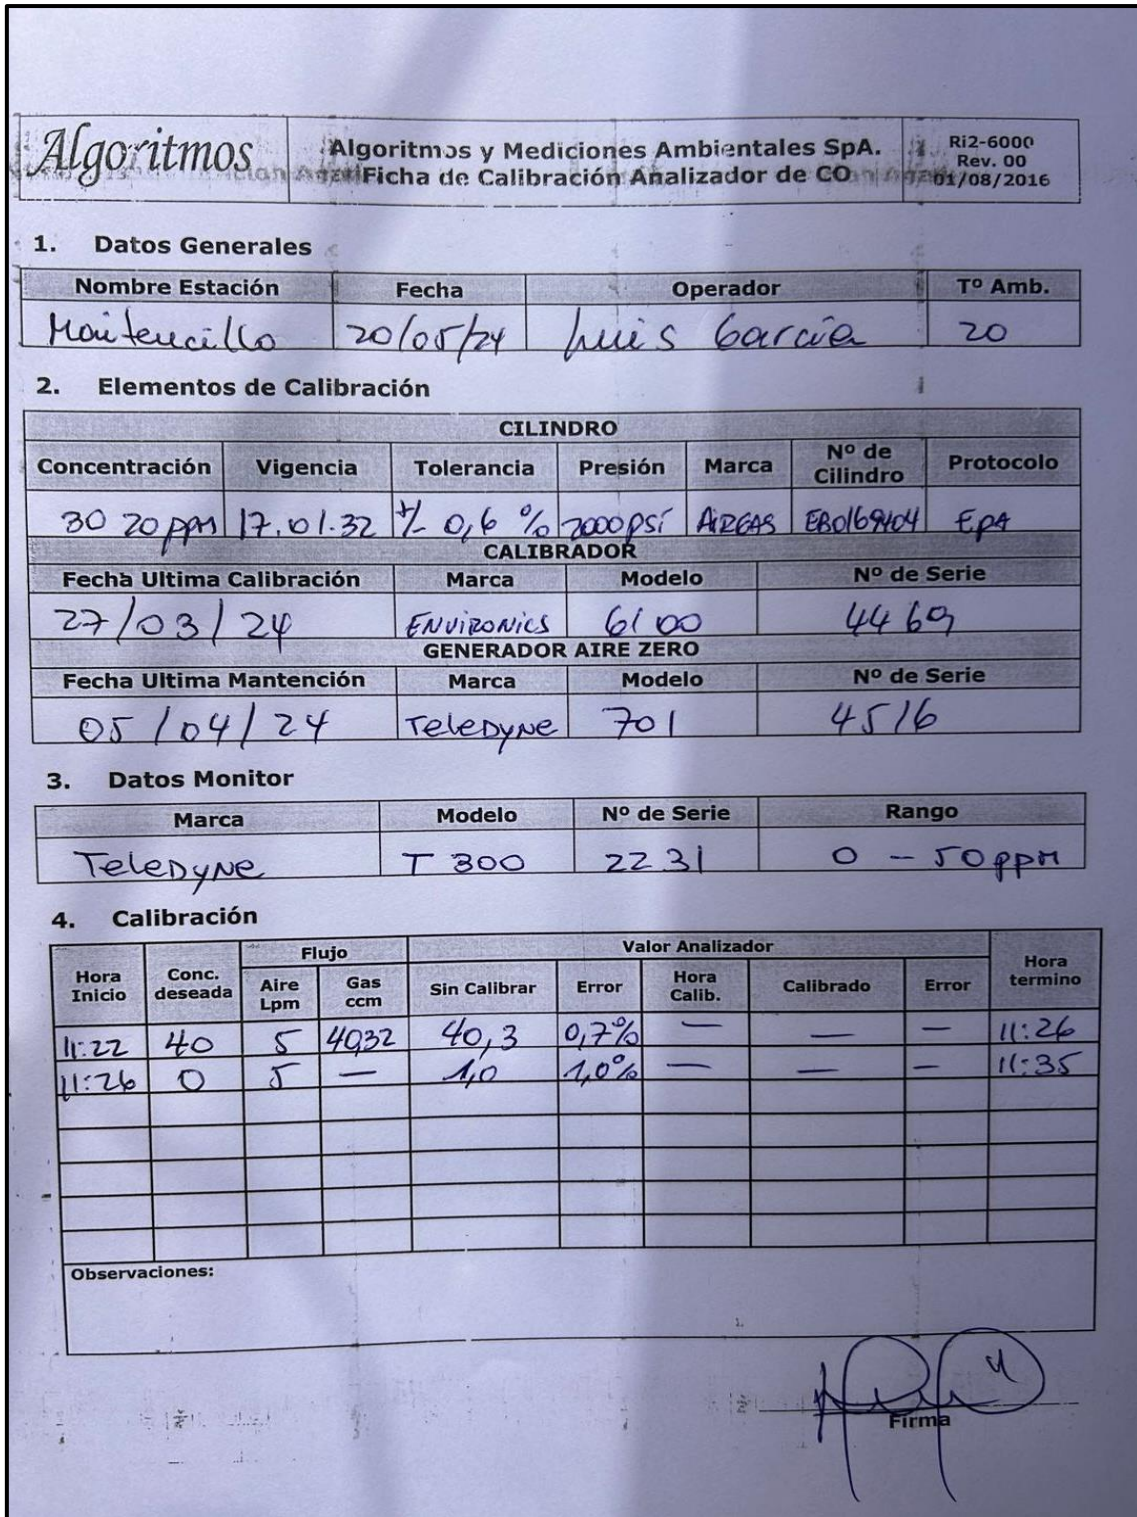 Algoritmos
Algoritmos y Mediciones Ambientales SpA.
Ficha de Calibración Analizador de CO
Ri2-6000
Rev. 00
01/08/2016
1. Datos Generales
Nombre Estación Fecha Operador Tº Amb.
Maitencillo 20/05/24 Luis Garcia 20
2. Elementos de Calibración
CILINDRO
Concentración Vigencia Tolerancia Presión Marca Nº de Cilindro Protocolo
3020 ppm 17.01.32 +/- 0,6 % 2000 psi AIRGAS EB0169104 EPA
CALIBRADOR
Fecha Ultima Calibración Marca Modelo Nº de Serie
27/03/24 ENVIRONICS 6100 4469
GENERADOR AIRE ZERO
Fecha Ultima Mantención Marca Modelo Nº de Serie
05/04/24 TeleDyNe 701 4516
3. Datos Monitor
Marca Modelo Nº de Serie Rango
TeleDyNe T 300 2231 0 - 50 ppm
4. Calibración
Hora Inicio Conc. deseada Flujo Valor Analizador Hora termino
Aire Lpm Gas ccm Sin Calibrar Error Hora Calib. Calibrado Error
11:22 40 5 40,3 0,7% — — — 11:26
11:26 0 5 — 1,0 1,0% — — — 11:35
Observaciones:
Firma